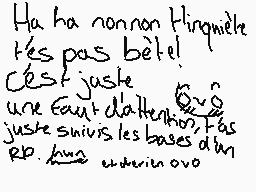 Ha ha nonnon t'inquiète
t'es pas bête!
c'est juste
une faut d'attention, t'as
juste suivis les bases d'un
RP. hun et de rien OvO